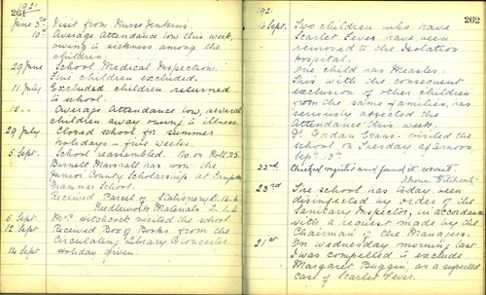 261
1921
June 3rd Visit from Nurse Jenkins.
10th Average Attendance low this week,
owing to sickness among the
children.
29 June School Medical Inspection.
Five children excluded.
11 July Excluded children returned
to school.
15 Average Attendance low, several
children away owing to illness.
29 July Closed school for summer
holidays - five weeks.
5 Sept. School reassembled. No. on Roll, 25.
Burnett Marshall has won the
Junior County Scholarship at Campden
Grammar School.
Received Parcel of Stationery
Needlework Materials
6 Sept. Hitchcock visited the school.
12 Sept. Received Box of Books from the
Circulating Library Gloucester.
14 Sept. Holiday given.
262
192
16 Sept. Two children who have
Scarlet Fever have been
removed to the Isolation
Hospital.
One child has Measles.
This with the consequent
exclusion of other children
from the same families, has
seriously affected the
Attendance this week.
Dr. Evans visited the
school on Tuesday afternoon
Sept. 13th.
22nd Checked registers and found it correct
23rd The school has today been
disinfected by order of the
Sanitary Inspector, in accordance
with a request made by the
Chairman of the Managers.
21st On Wednesday morning last
I was compelled to exclude
Margaret Buggin, as a suspected
case of Scarlet Fever.